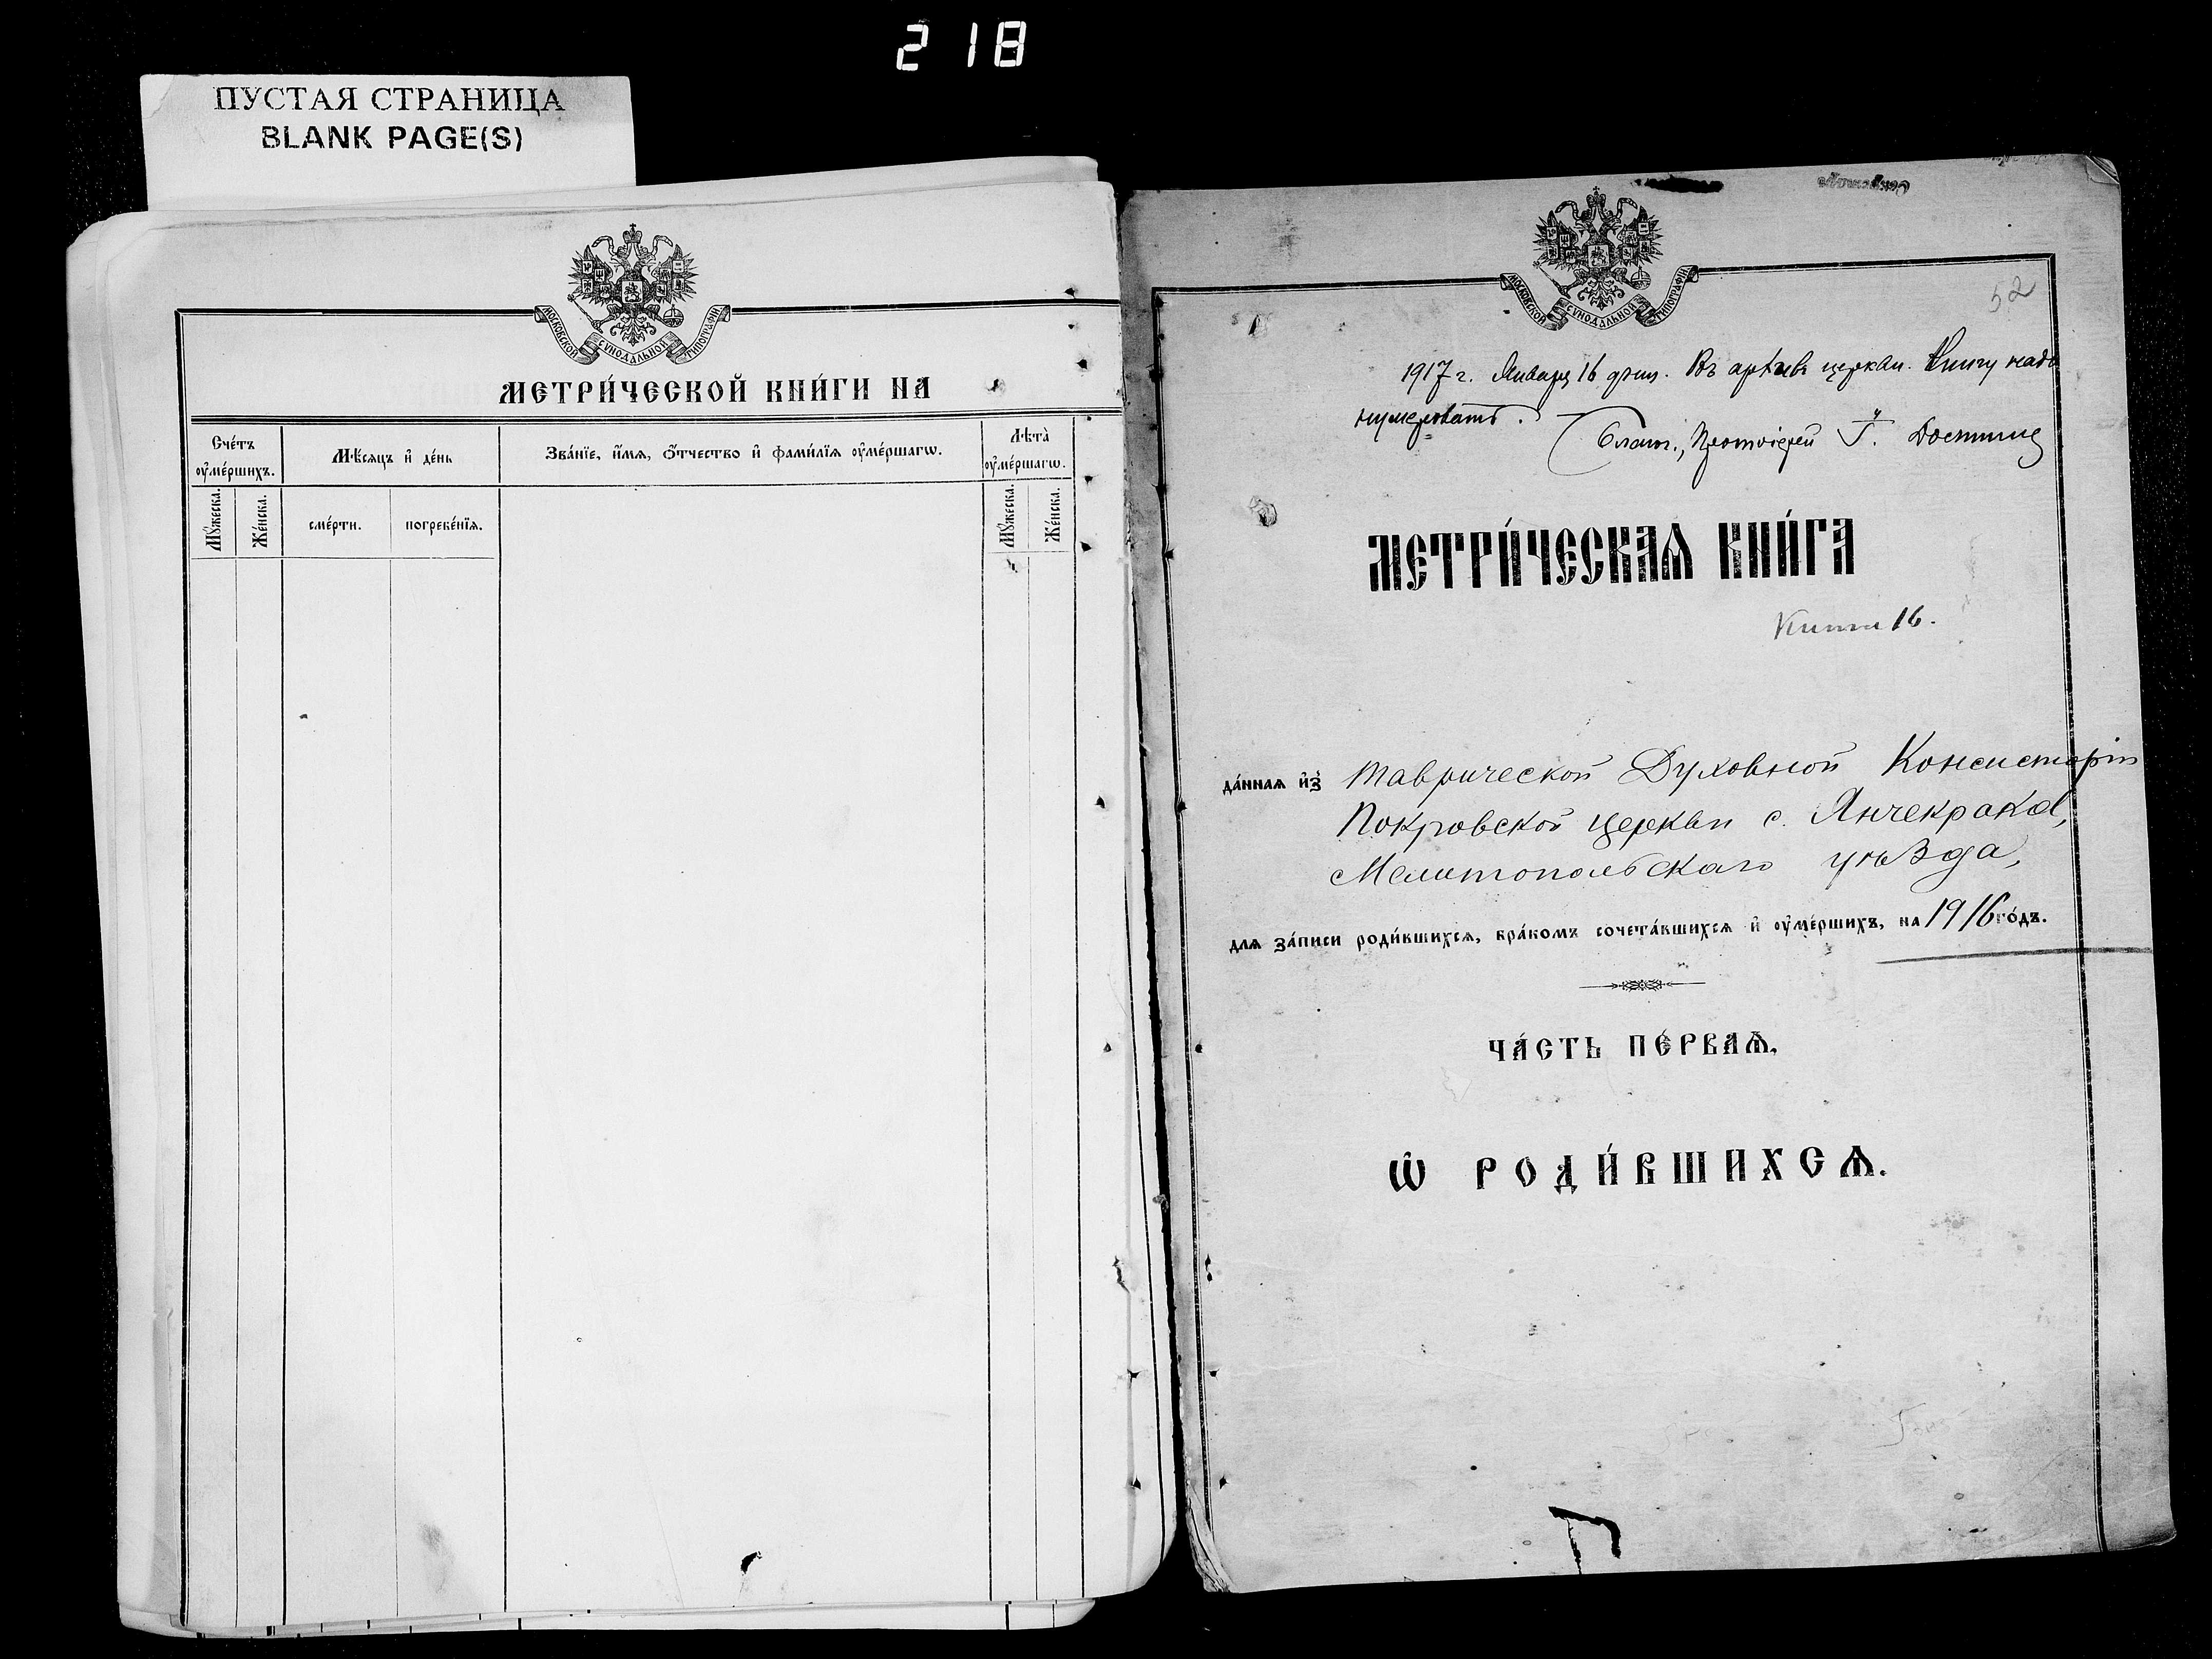 218
ПУСТАЯ СТРАНИЦА
BLANK PAGE(S)
МОСКОВСКОЙ СѴНОДАЛЬНОЙ ТИПОГРАФІИ
МЕТРИ́ЧЕСКОЙ КНИ́ГИ НА
Сче́тъ оу҆ме́ршихъ.
Мѣ́сяцъ и҆ де́нь
Зва́нїе, и҆́мѧ, ѻ҆́тчество и҆ фами́лїѧ оу҆ме́ршагѡ.
Лѣта̀ оу҆ме́ршагѡ.
Мꙋ́жеска.
Же́нска.
сме́рти.
погребе́нїѧ.
Мꙋ́жеска.
Же́нска.
МОСКОВСКОЙ СѴНОДАЛЬНОЙ ТИПОГРАФІИ
52
1917 г. Января 16 дня. Въ архивъ церкви. Книгу надо
нумеровать.
Благоч., Протоіерей
МЕТРИ́ЧЕСКАѦ КНИ́ГА
Книга 16.
да́ннаѧ и҆з̾ Таврической Духовной Консисторіи
Покровской церкви с. Янчекрака,
Мелитопольскаго уѣзда,
для за́писи роди́вшихсѧ, бра́комъ сочета́вшихсѧ и҆ оу҆ме́ршихъ, на 1916 го́дъ.
ЧА́СТЬ ПЕ́РВАѦ,
Ѽ РОДИ́ВШИХСѦ.